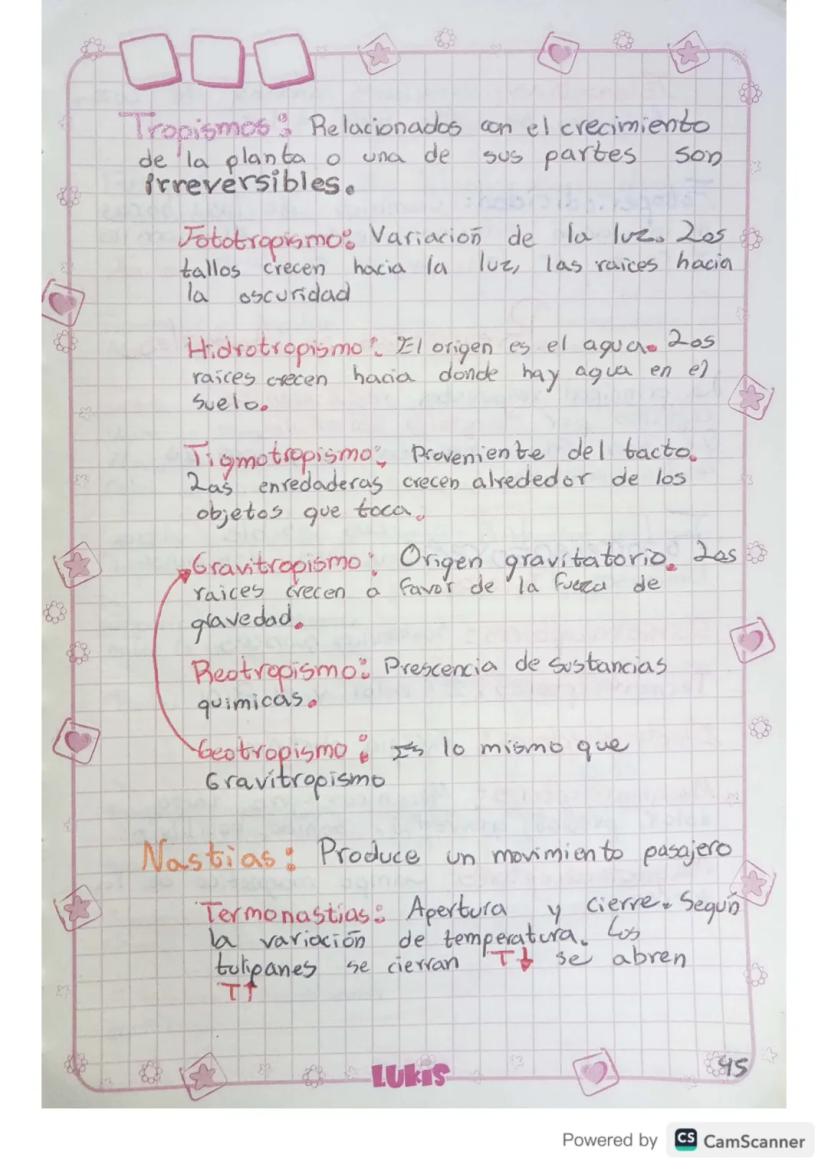 Tropismos: Relacionados con el crecimiento
de la planta o una de sus partes son
irreversibles.
Fototropismo: Variación de la luz. Los
tallos crecen hacia la luz, las raices hacia
la oscuridad
Hidrotropismo: El origen es el agua. Los
raices crecen hacia donde hay agua en el
suelo.
Tigmotropismo: Proveniente del tacto.
Las enredaderas crecen alrededor de los
objetos que toca.
Gravitropismo: Origen gravitatorio. Las
raices crecen a favor de la fueza de
gravedad.
Reotropismo: Prescencia de sustancias
quimicas.
Geotropismo: Es lo mismo que
Gravitropismo
Nastias: Produce un movimiento pasajero
Termonastias: Apertura y cierre. Según
la variación de temperatura. Los
tulipanes se cierran T↓ se abren
T↑
LUKIS
45
Powered by CS CamScanner